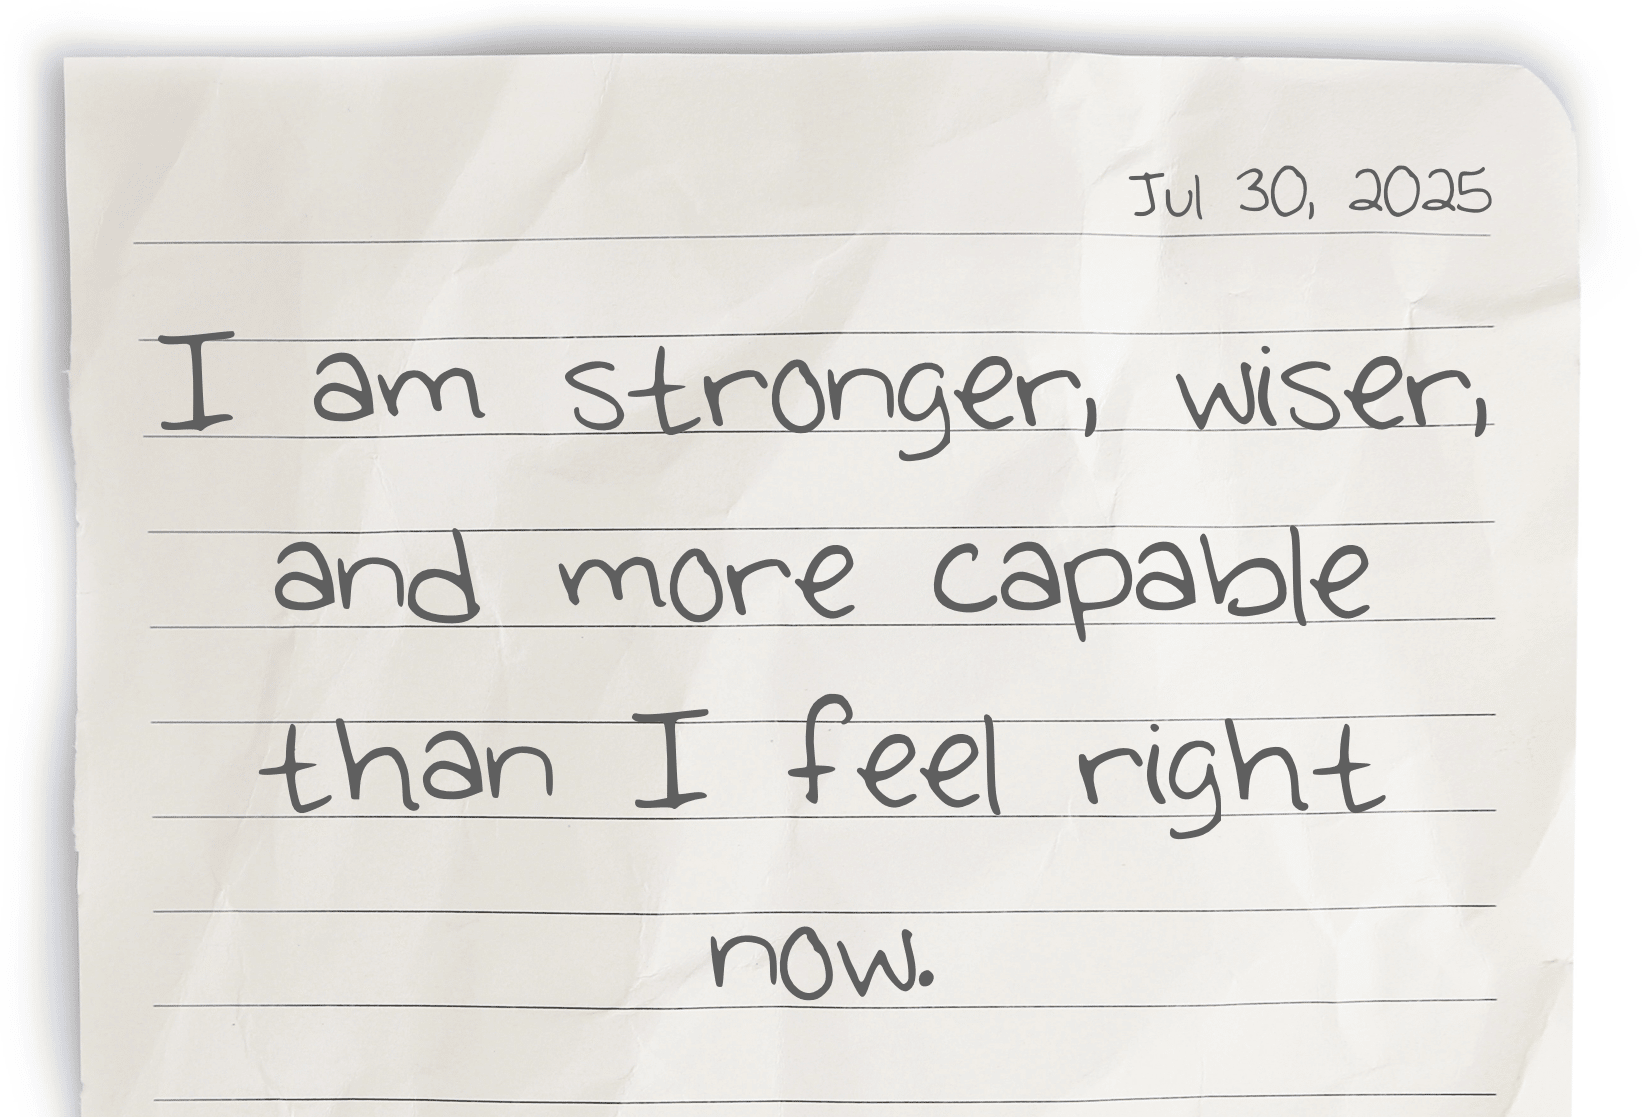 Jul 30, 2025
I am stronger, wiser,
and more capable
than I feel right
now.